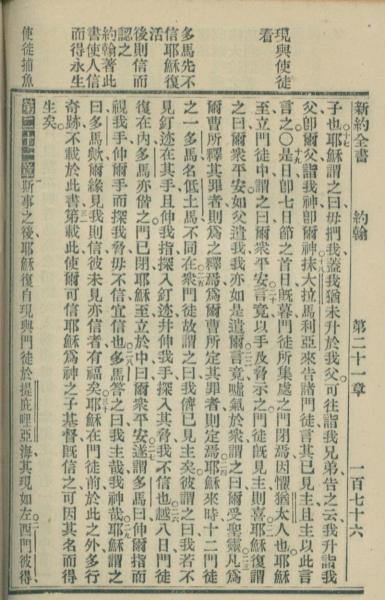 新約全書　約翰　第二十一章　一百七十六
現與使徒
看
多馬先不
信耶穌復
活
後則信而
認之
約翰著此
書使人信
而得永生
使徒捕魚
子也耶穌謂之曰毋捫我蓋我猶未升於我父可往詣我兄弟告之云我升詣我
父卽爾父詣我神卽爾神抹大拉馬利亞來告諸門徒言其已見主且主以此言
言之○是日卽七日節之首日旣暮門徒所集處之門閉焉因懼猶太人也耶穌
至立門徒中謂之曰爾衆平安言竟以手及脅示之門徒旣見主則喜耶穌復謂
之曰爾衆平安如父遣我我亦如是遣爾言竟噓氣於衆謂之曰爾受聖靈凡爲
爾曹所釋其罪者則爲之釋焉爲爾曹所定其罪者則定焉耶穌來時十二門徒
之一多馬名低土馬不同在衆門徒故謂之曰我儕已見主矣彼謂之曰我若不
見釘迹在其手且伸我指探入釘迹幷伸我手探入其脅我不信也越八日門徒
復在內多馬亦偕之門已閉耶穌至立於中曰爾衆平安遂謂多馬曰伸爾指而
視我手伸爾手而探我脅毋不信宜信也多馬答之曰我主哉我神哉耶穌謂之
曰多馬歟爾緣見我則信彼未見亦信者有福矣耶穌在門徒前於此之外多行
奇跡不載於此書第載此使爾可信耶穌爲神之子基督旣信之可因其名而得
生矣
第二十一章斯事之後耶穌復自現與門徒於提庇哩亞海其現如左西門彼得